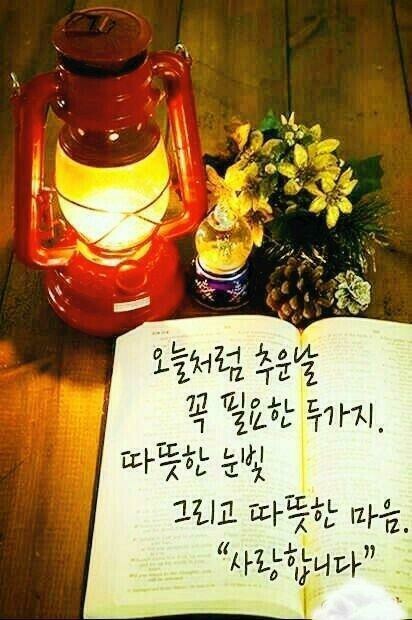 오늘처럼 추운날
꼭 필요한 두가지.
따뜻한 눈빛
그리고 따뜻한 마음.
“사랑합니다”